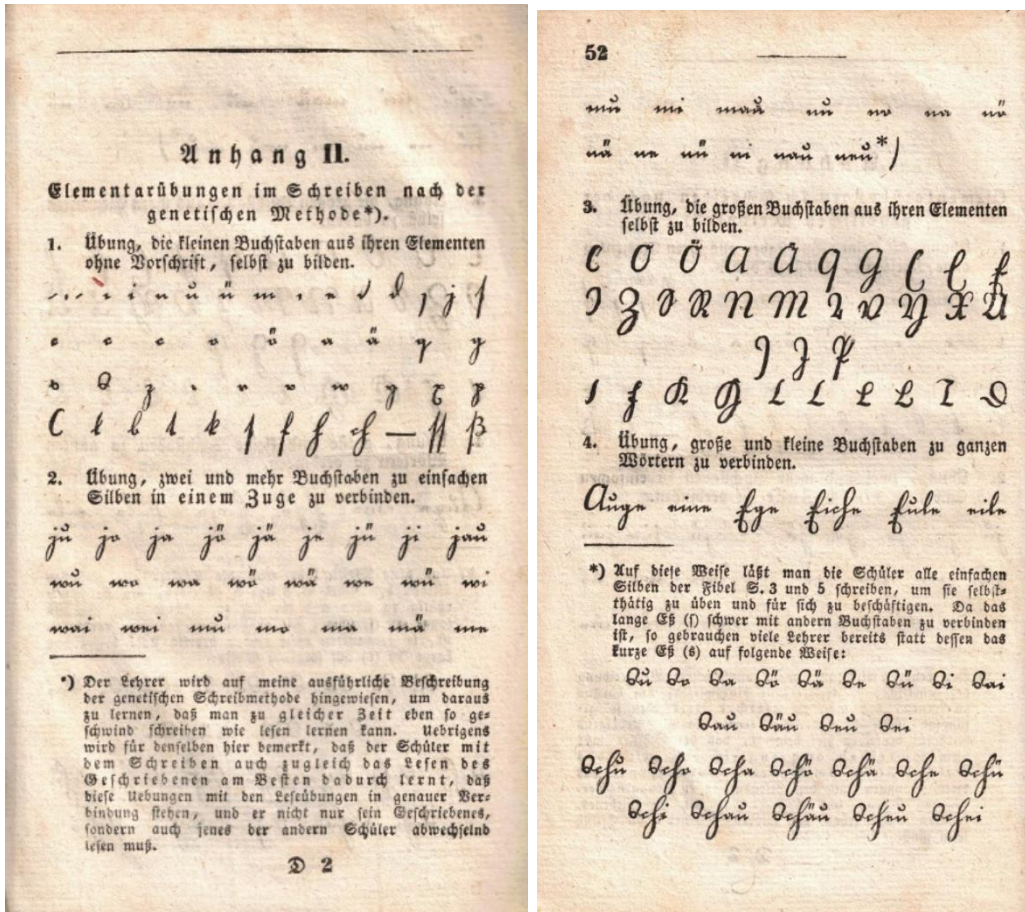 Anhang II.
Elementarübungen im Schreiben nach der
genetischen Methode*).
1. Übung, die kleinen Buchstaben aus ihren Elementen
ohne Vorschrift, selbst zu bilden.
i n u ü m e d j ſ
c o ö a ä q g
C t b t k ſ f h ch — ſſ ß
2. Übung, zwei und mehr Buchstaben zu einfachen
Silben in einem Zuge zu verbinden.
ju jo ja jö jä je jü ji jau
wu wo wa wö wä we wü wi
wai wei mu mo ma mä me
*) Der Lehrer wird auf meine ausführliche Beschreibung
der genetischen Schreibmethode hingewiesen, um daraus
zu lernen, daß man zu gleicher Zeit eben so ge-
schwind schreiben wie lesen lernen kann. Uebrigens
wird für denselben hier bemerkt, daß der Schüler mit
dem Schreiben auch zugleich das Lesen des
Geschriebenen am Besten dadurch lernt, daß
diese Uebungen mit den Leseübungen in genauer Ver-
bindung stehen, und er nicht nur sein Geschriebenes,
sondern auch jenes der andern Schüler abwechselnd
lesen muß.
D 2
52
mü mi mau nu no na nö
nä ne nü ni nau neu*)
3. Übung, die großen Buchstaben aus ihren Elementen
selbst zu bilden.
C O Ö A Ä Q G
Z O R N M V Y X U
J P
K L L B
4. Übung, große und kleine Buchstaben zu ganzen
Wörtern zu verbinden.
Auge eine Ege Eiche Eule eile
*) Auf diese Weise läßt man die Schüler alle einfachen
Silben der Fibel S. 3 und 5 schreiben, um sie selbst-
thätig zu üben und für sich zu beschäftigen. Da das
lange Eß (ſ) schwer mit andern Buchstaben zu verbinden
ist, so gebrauchen viele Lehrer bereits statt dessen das
kurze Eß (s) auf folgende Weise:
Su So Sa Sö Sä Se Sü Si Sai
Sau Säu Seu Sei
Schu Scho Scha Schö Schä Sche Schü
Schi Schau Schäu Scheu Schei